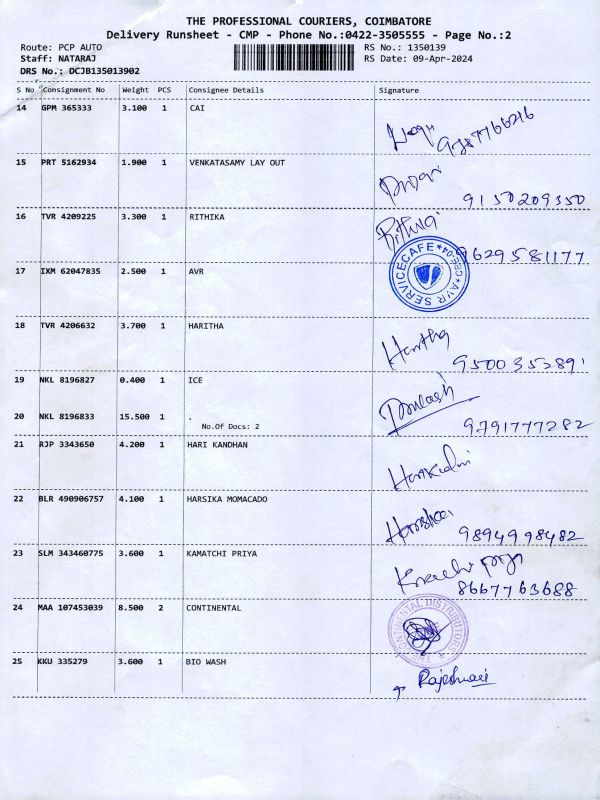 THE PROFESSIONAL COURIERS, COIMBATORE
Delivery Runsheet - CMP - Phone No.:0422-3505555 - Page No.:2
Route: PCP AUTO RS No.: 1350139
Staff: NATARAJ RS Date: 09-Apr-2024
DRS No.: DCJB135013902
S No Consignment No Weight PCS Consignee Details Signature
14 GPM 365333 3.100 1 CAI
15 PRT 5162934 1.900 1 VENKATASAMY LAY OUT
9150209350
16 TVR 4209225 3.300 1 RITHIKA
9629581177
17 IXM 62047835 2.500 1 AVR
AVR SERVICECAFE
18 TVR 4206632 3.700 1 HARITHA
Haritha
19 NKL 8196827 0.400 1 ICE
20 NKL 8196833 15.500 1 .
No.Of Docs: 2
9791777282
21 RJP 3343650 4.200 1 HARI KANDHAN
22 BLR 490906757 4.100 1 HARSIKA MOMACADO
9894998482
23 SLM 343460775 3.600 1 KAMATCHI PRIYA
8667763688
24 MAA 107453039 8.500 2 CONTINENTAL
25 KKU 335279 3.600 1 BIO WASH
Rajeshwari